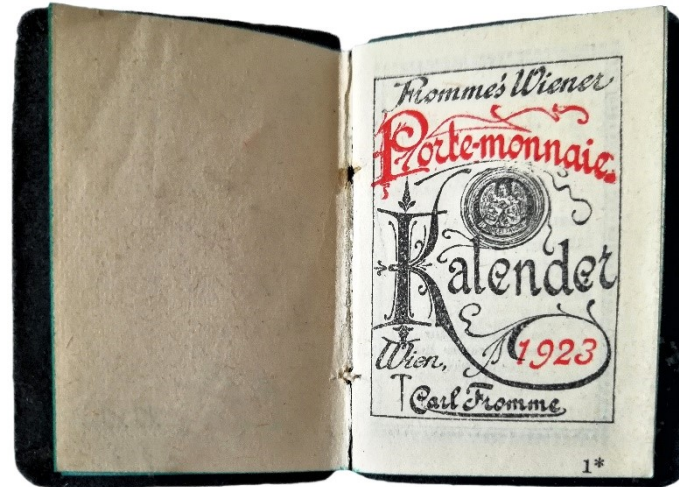 Fromme's Wiener
Porte-monnaie
Kalender
1923
Wien,
Carl Fromme
1*